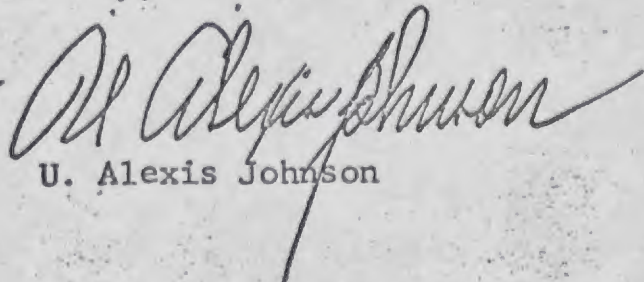 U Alexis Johnson
U. Alexis Johnson